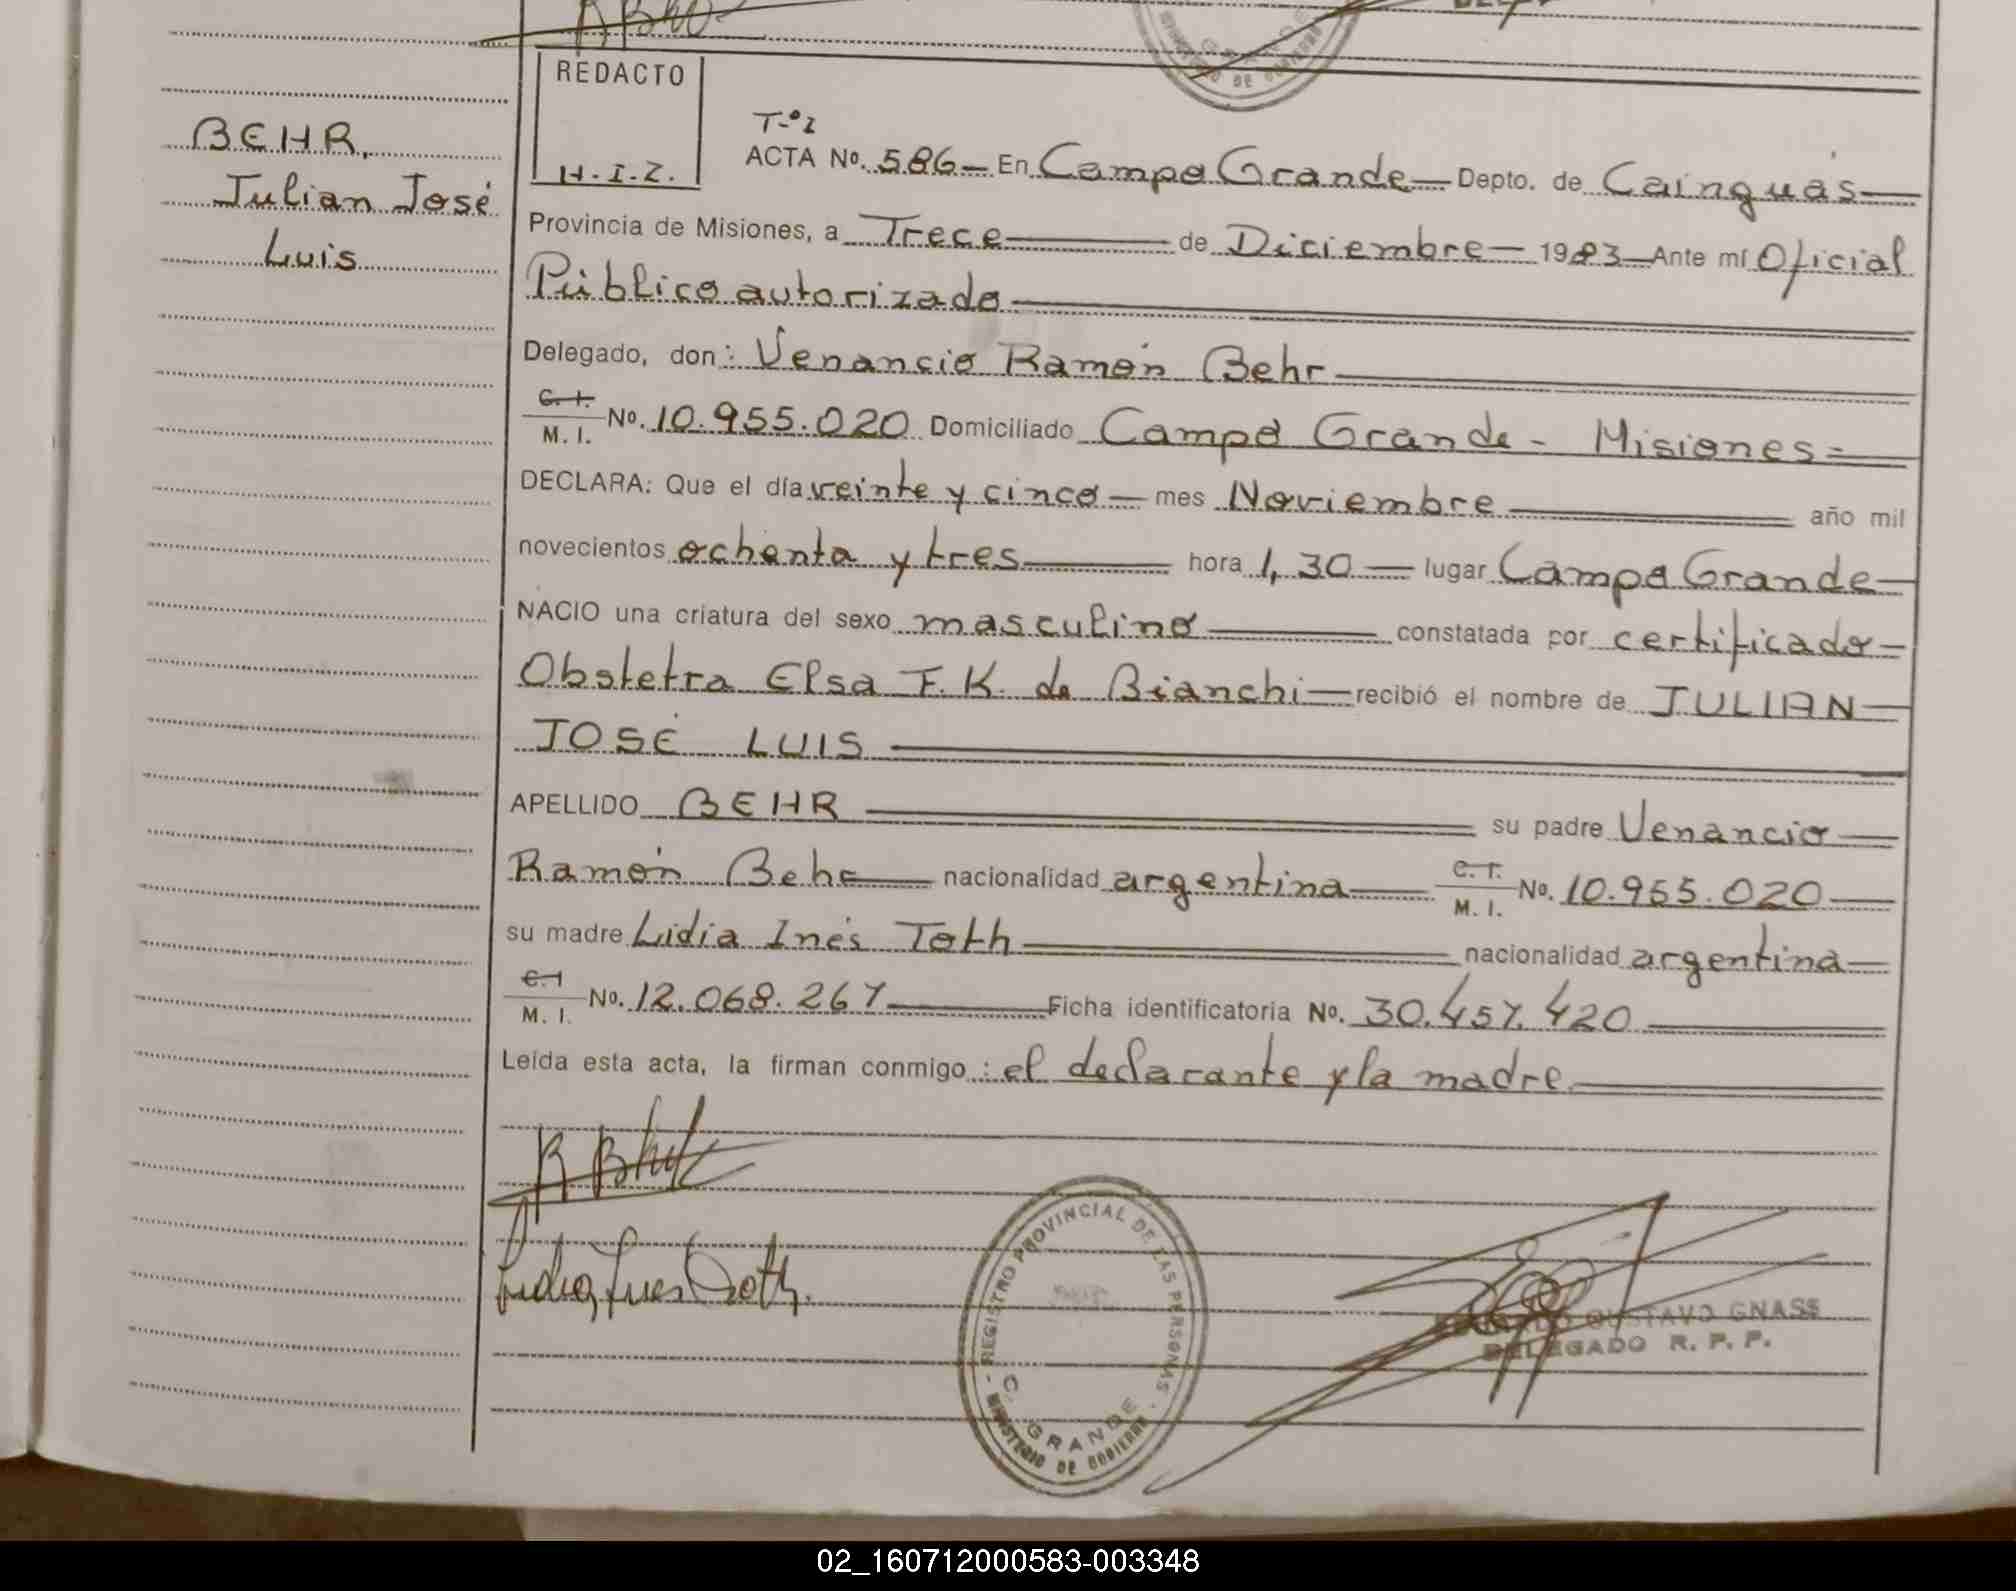 BEHR,
Julian José
Luis
REDACTO
H.I.Z.
T-º 2
ACTA Nº. 586 - En Campo Grande - Depto. de Cainguás
Provincia de Misiones, a Trece de Diciembre - 1983 - Ante mí Oficial
Público autorizado
Delegado, don: Venancio Ramón Behr
C. I.
M. I. Nº. 10.955.020 Domiciliado Campo Grande - Misiones
DECLARA: Que el día veinte y cinco - mes Noviembre año mil
novecientos ochenta y tres hora 1,30 - lugar Campo Grande
NACIO una criatura del sexo masculino constatada por certificado
Obstetra Elsa F. K. de Bianchi - recibió el nombre de JULIAN
JOSÉ LUIS
APELLIDO BEHR su padre Venancio
Ramón Behr nacionalidad argentina C. I.
M. I. Nº. 10.955.020
su madre Lidia Inés Toth nacionalidad argentina
C. I
M. I. Nº. 12.068.267 Ficha identificatoria Nº. 30.457.420
Leída esta acta, la firman conmigo: el declarante y la madre
Lidia Ines Toth.
REGISTRO PROVINCIAL DE LAS PERSONAS
C. GRANDE
MINISTERIO DE GOBIERNO
GUSTAVO GNASS
DELEGADO R. P. P.
02_160712000583-003348